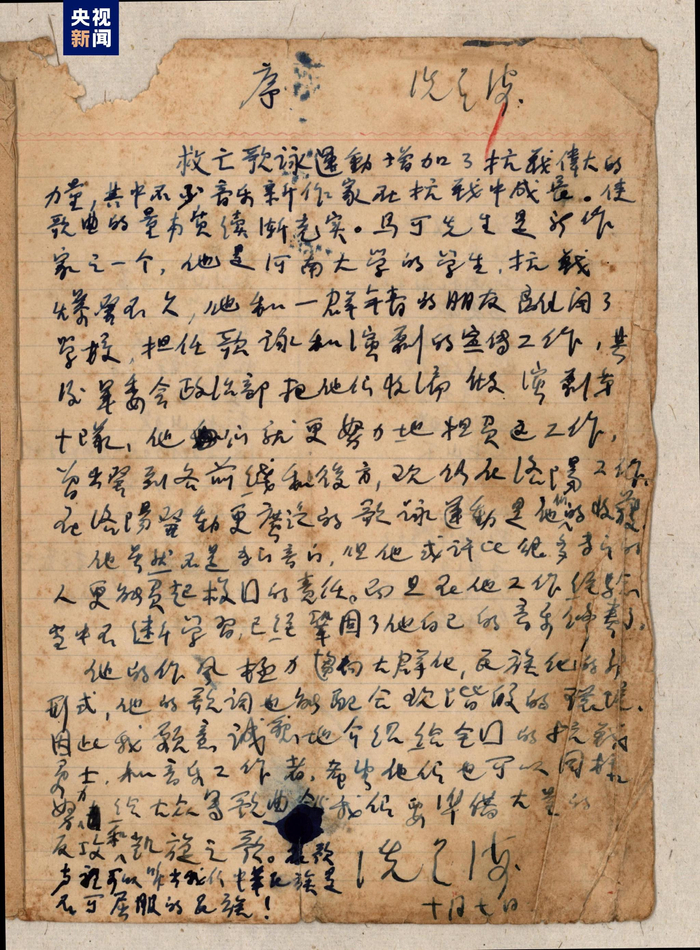 央视
新闻
序 洗星海
救亡歌詠運動增加了抗战偉大的
力量，其中不少音乐新作家在抗战中成長。使
歌曲的量与质續渐充实。马可先生是新作
家之一个，他是河南大学的学生，抗战
爆發不久，他和一群年青的朋友离開了
学校，担任歌詠和演剧的宣传工作，其
後军委会政治部把他们收编做演剧第
十隊，他们就更努力地担负这工作，
曾出發到各前线和後方，现仍在洛陽工作。
在洛陽發動更廣泛的歌詠運動是他们的收穫。
他虽然不是专门音乐，但他或许比很多专门的
人更能负起救囯的责任。而且在他工作经验
当中不断学習，已经鞏固了他自己的音乐
他的作风极力趋向大群化，民族化的
形式，他的歌词也能配合现階段的环境。
因此我願意诚懇地介绍给全囯的抗战
勇士，和音乐工作者，希望他们也可以同样
努力给大众写歌曲，我们要準備大量的
反攻和凯旋之歌。在歌
声裡可以听出我们中華民族是
不可屈服的民族！
洗星海
十月七日